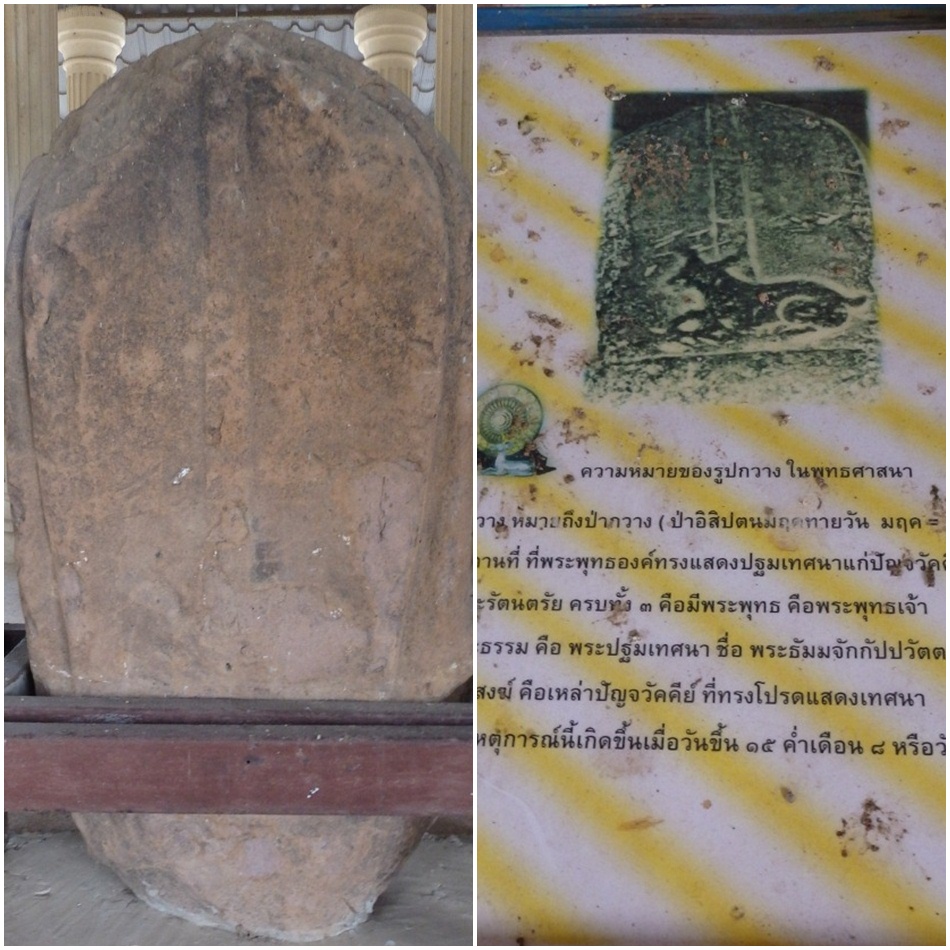 ความหมายของรูปกวาง ในพุทธศาสนา
วาง หมายถึงป่ากวาง ( ป่าอิสิปตนมฤคทายวัน มฤค =
านที่ ที่พระพุทธองค์ทรงแสดงปฐมเทศนาแก่ปัญจวัคคี
ะรัตนตรัย ครบทั้ง ๓ คือมีพระพุทธ คือพระพุทธเจ้า
ะธรรม คือ พระปฐมเทศนา ชื่อ พระธัมมจักกัปปวัตต
สงฆ์ คือเหล่าปัญจวัคคีย์ ที่ทรงโปรดแสดงเทศนา
หตุการณ์นี้เกิดขึ้นเมื่อวันขึ้น ๑๕ ค่ำเดือน ๘ หรือวั